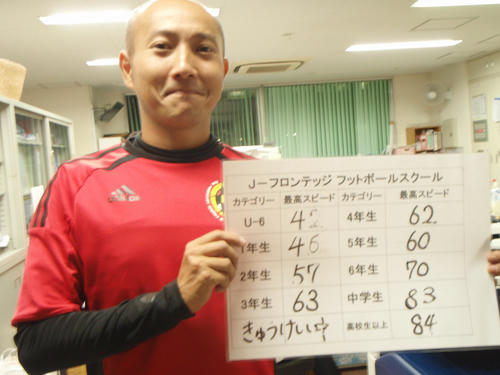 adidas
J-フロンテッジ フットボールスクール
カテゴリー 最高スピード カテゴリー 最高スピード
U-6 42 4年生 62
1年生 46 5年生 60
2年生 57 6年生 70
3年生 63 中学生 83
きゅうけい中 高校生以上 84